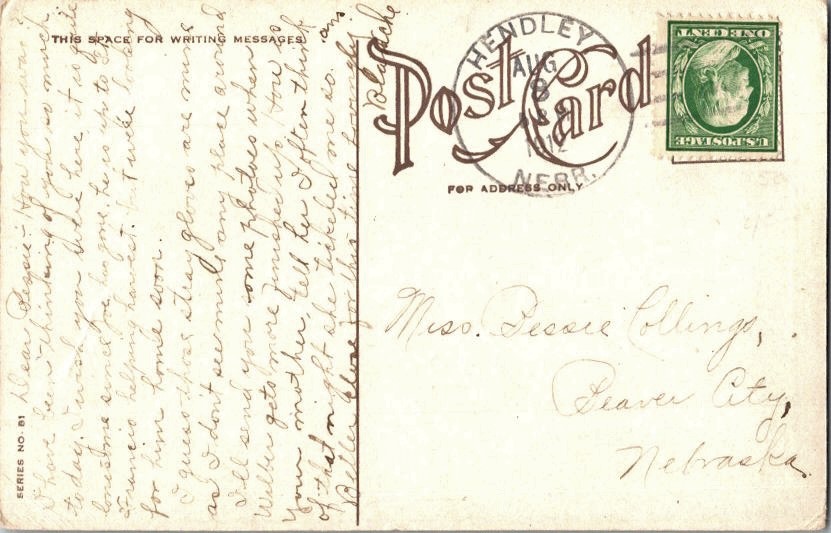 THIS SPACE FOR WRITING MESSAGES
Dear Bessie:- How you was?
I have been thinking of you so much
today. I wish you were here, it is quite
lonesome since Joe has gone, he is up to
Francis helping harvest, but we're looking
for him home soon.
I guess those stray gloves are mine
as I don't see mine any place and
I'll send you some photoes when
Wilber gets more finished up. How is
your mother, tell her I often think
of that night she tickled me so.
Better close for this time
Blanche
SERIES NO. 81
Post Card
FOR ADDRESS ONLY
HENDLEY
AUG
8
1912
NEBR.
U.S. POSTAGE
ONE CENT
Miss. Bessie Collings,
Beaver City,
Nebraska.